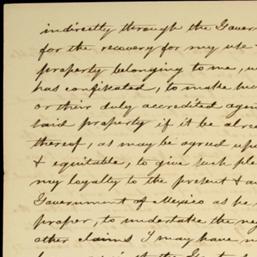 indirectly through the Gover
for the recovery for my use
property belonging to me, w
has confiscated, to make
or their duly accredited agen
said property if it be alre
thereof, as may be agreed upo
& equitable, to give such ple
my loyalty to the present & 
Government of Mexico as he
proper, to undertake the ne
other claims I may have